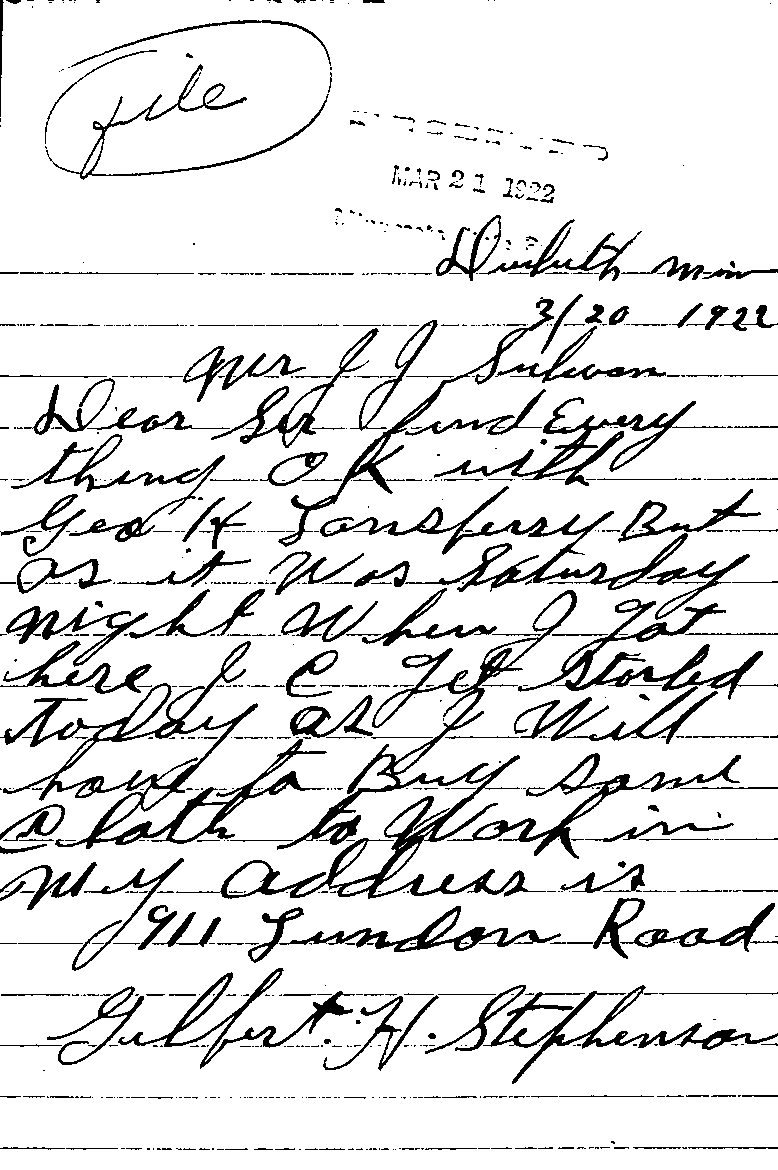 file
RECEIVED
MAR 21 1922
Duluth Min
3/20 1922
Mr J J Sulivan
Dear Sir find Every
thing O K with
Geo H Lonsferry But
as it Was Saturday
night When I got
here I C get Started
today as I Will
have to Buy some
Cloth to Work in
My address is
911 Lundon Road
Gilbert. H. Stephenson